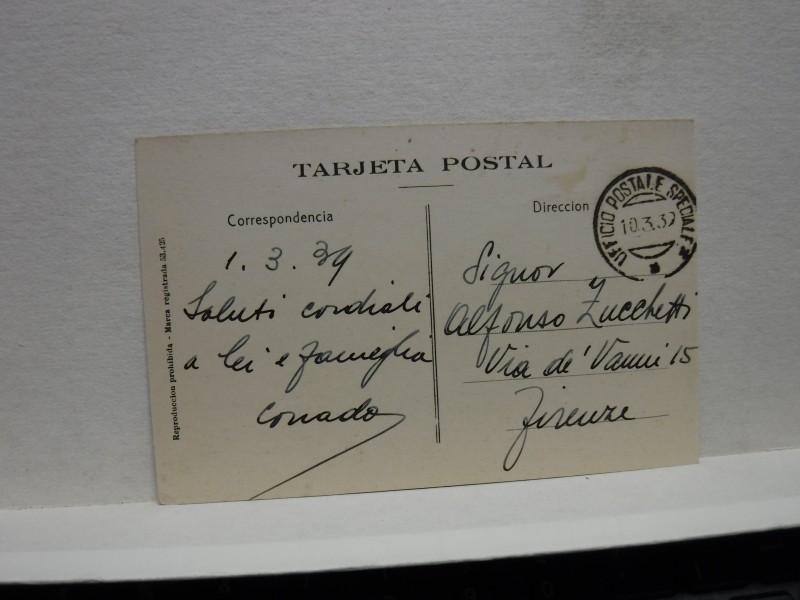 TARJETA POSTAL
Correspondencia
1. 3. 39
Saluti cordiali
a lei e famiglia
Corrado
Direccion
UFFICIO POSTALE SPECIALE
10.3.39
Signor
Alfonso Zucchetti
Via de' Vanni 15
Firenze
Reproduccion prohibida - Marca registrada 53.425